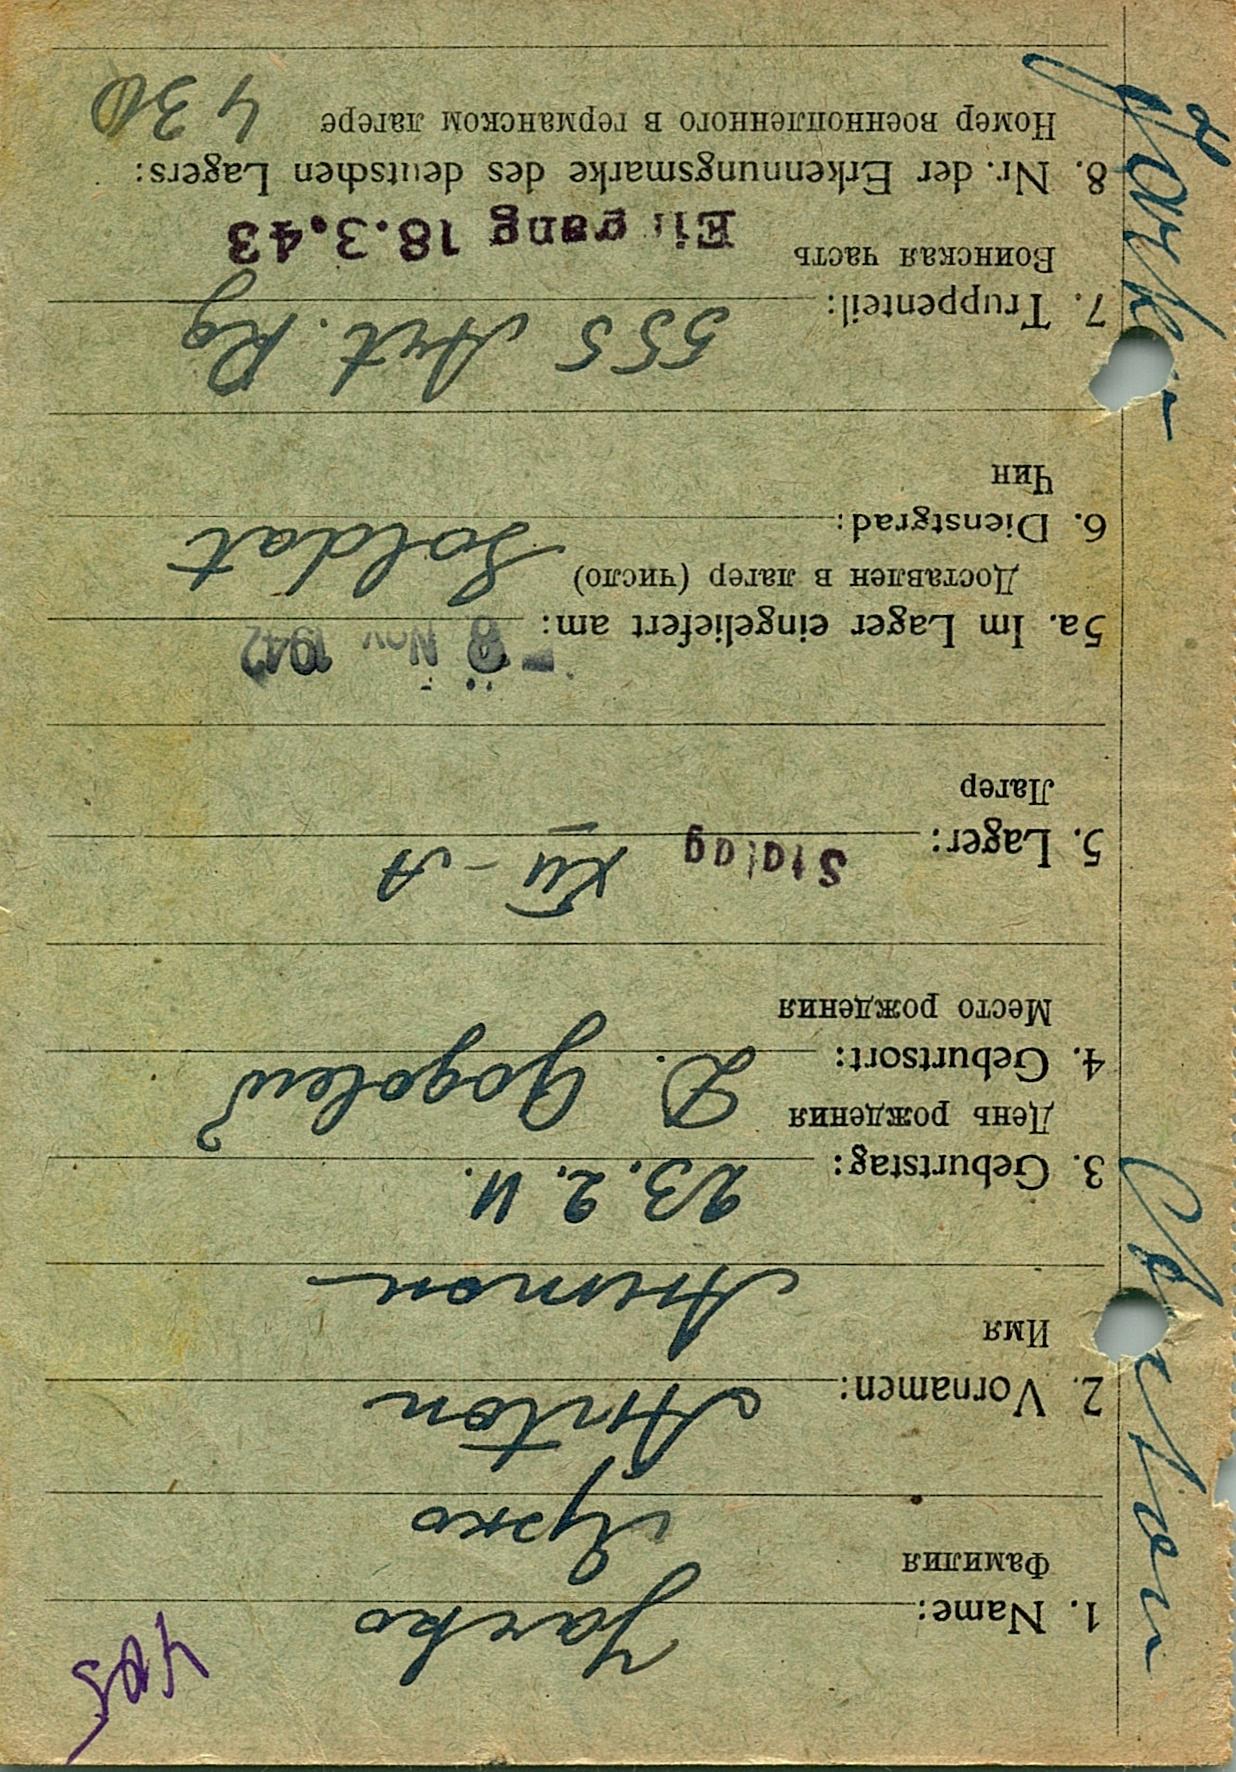 1. Name: Jarko
Фамилия Ярко
2. Vornamen: Anton
Имя Антон
3. Geburtstag: 23.2.11.
День рождения
4. Geburtsort: D. Gogolew
Место рождения
5. Lager: Stalag XII-A
Лагер
5a. Im Lager eingeliefert am: -8 Nov 1942
Доставлен в лагер (число)
6. Dienstgrad: Soldat
Чин
7. Truppenteil: 555 Art. Rg
Воинская часть Eingang 18.3.43
8. Nr. der Erkennungsmarke des deutschen Lagers:
Номер военнопленного в германском лагере 430